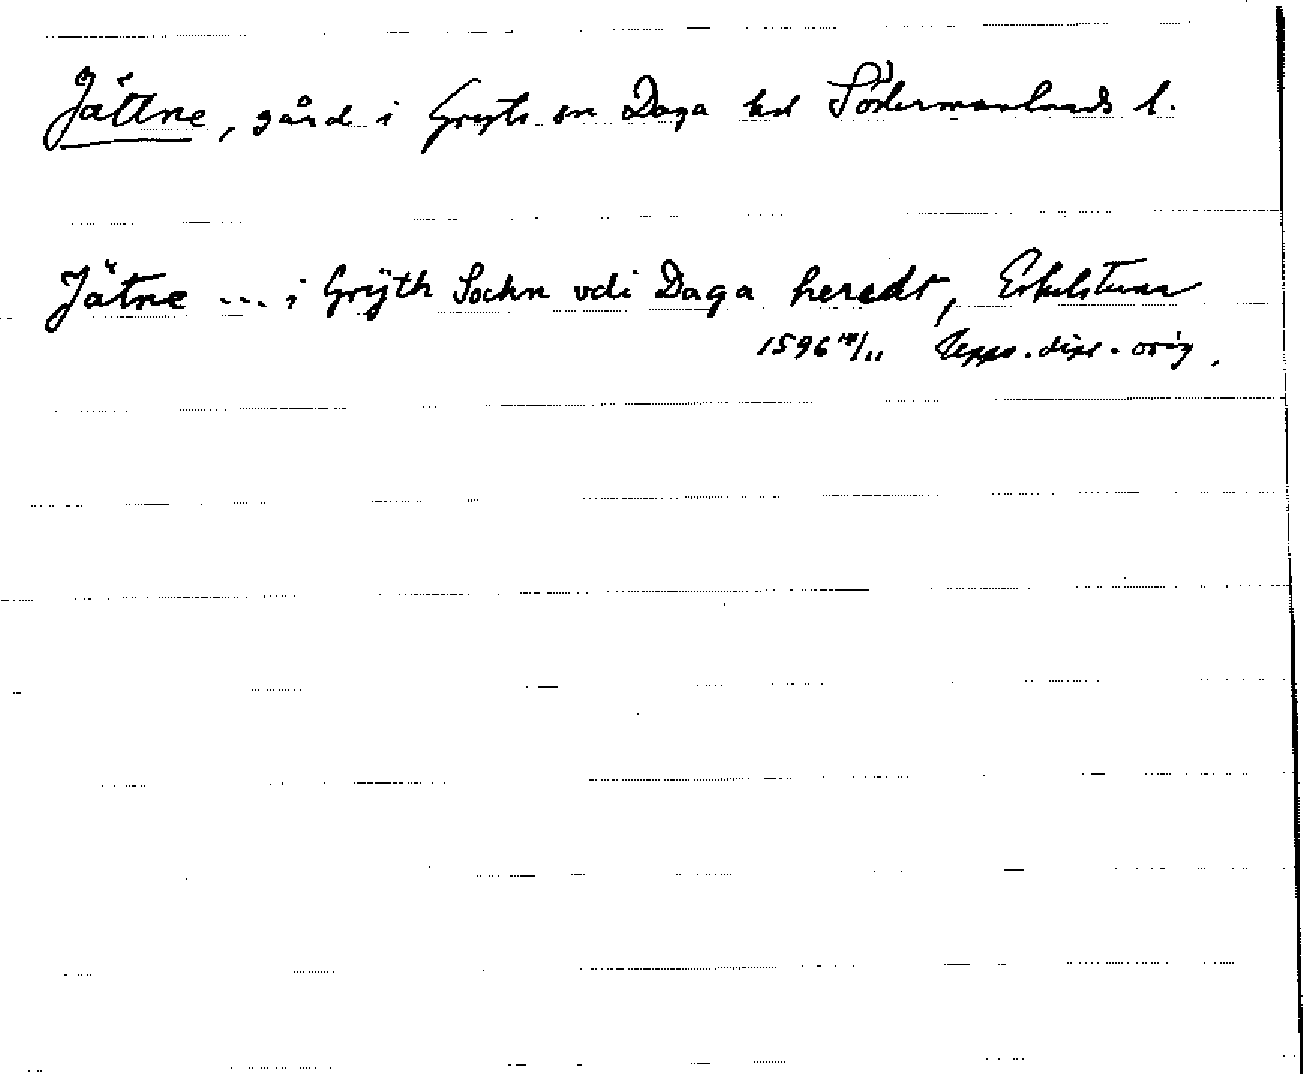 Jättne, gård i Gryts sn Daga hd Södermanlands l.
Jätne ... i Grÿth Sockn vdi Daga heredt, Eskelstuna
1596 /11 Upps. dipl. orig.